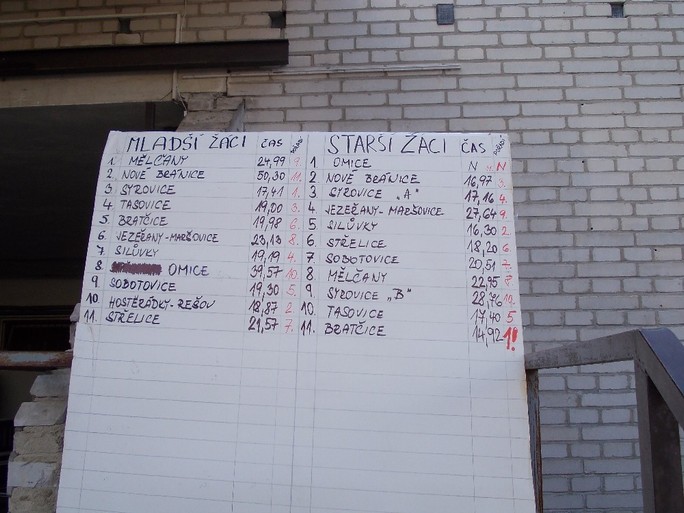 MLADŠÍ ŽÁCI ČAS STARŠÍ ŽÁCI ČAS
1. MĚLČANY 24,99 9. 1 OMICE N N
2 NOVÉ BRÁNICE 50,30 11. 2 NOVÉ BRÁNICE 16,97 3.
3 SYROVICE 17,41 1. 3 SYROVICE „A" 17,16 4.
4 TASOVICE 19,00 3. 4 JEZEŘANY-MARŠOVICE 27,64 9.
5. BRATČICE 19,98 6. 5 SILŮVKY 16,30 2
6. JEZEŘANY-MARŠOVICE 23,13 8. 6 STŘELICE 18,20 6.
7. SILŮVKY 19,19 4. 7 SOBOTOVICE 20,51 7.
8. OMICE 39,57 10 8 MĚLČANY 22,95 8
9. SOBOTOVICE 19,30 5. 9. SYROVICE „B" 28,76 10.
10 HOSTĚRÁDKY-REŠOV 18,87 2. 10. TASOVICE 17,40 5
11. STŘELICE 21,57 7. 11. BRATČICE 14,92 1!